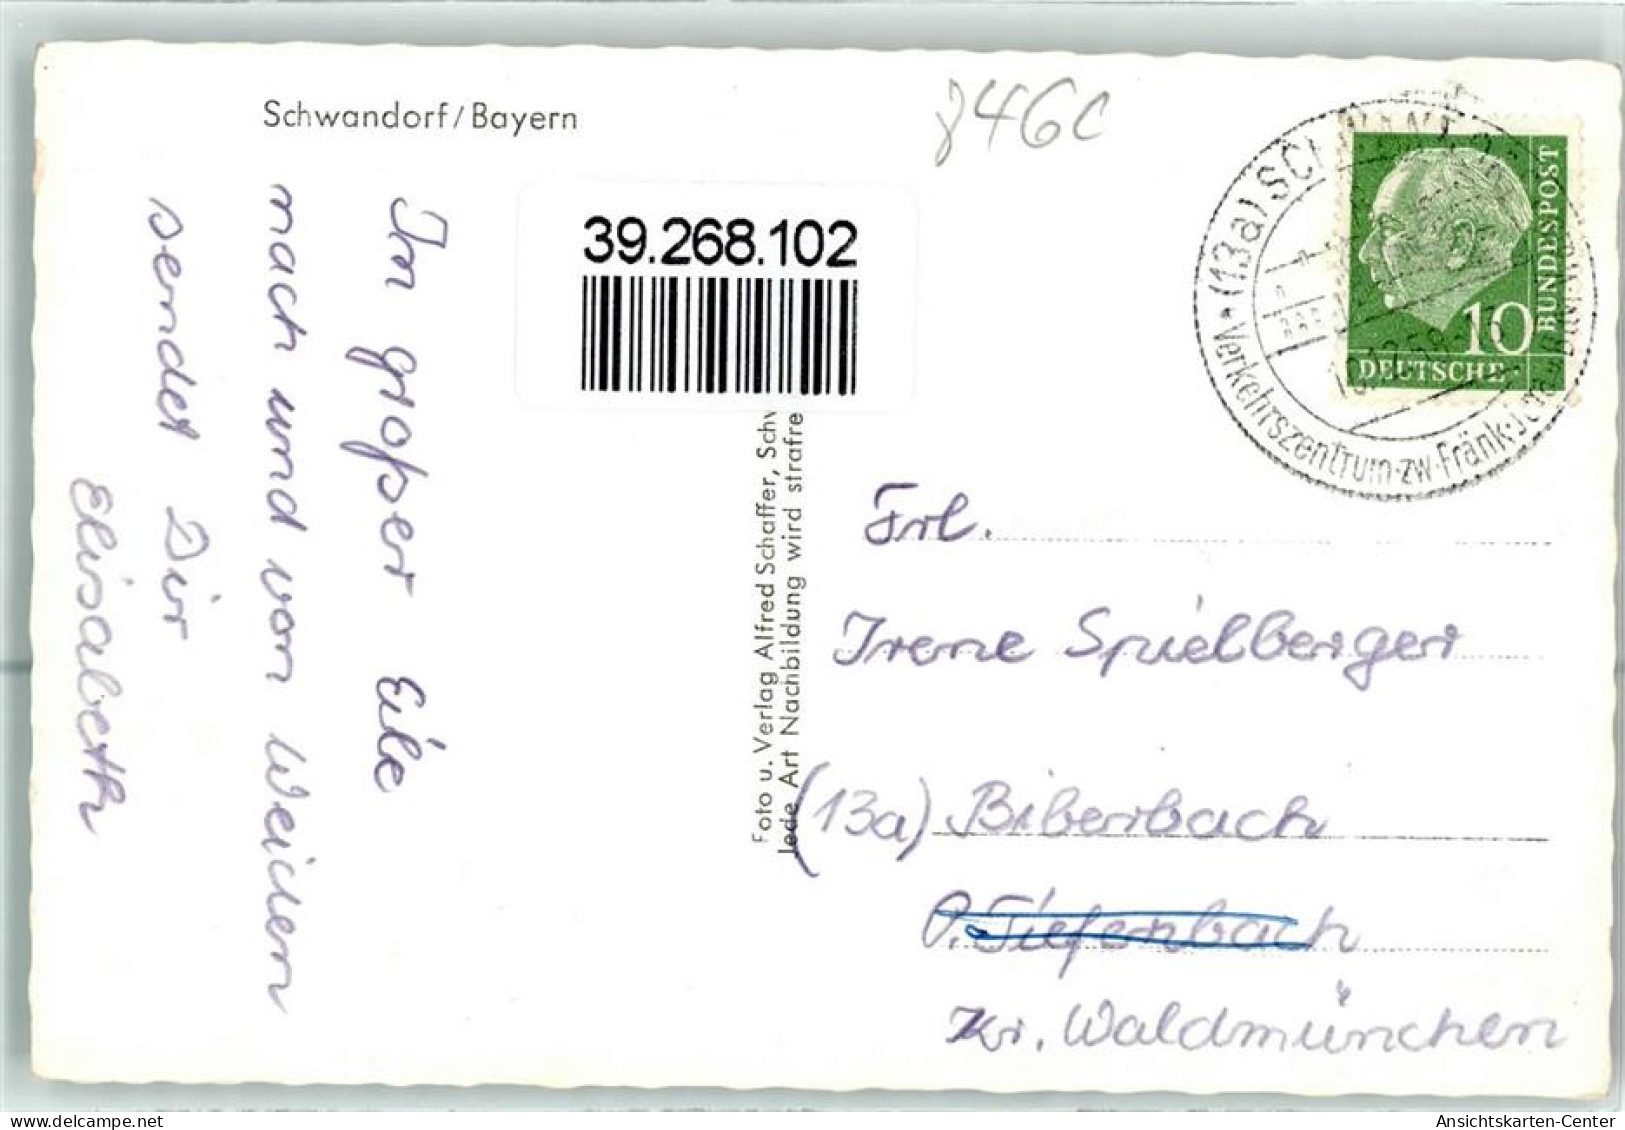 Schwandorf/Bayern
846c
39.268.102
In großer Eile
mach und von Weiden
sendet Dir
Elisabeth
Foto u. Verlag Alfred Schaffer, Schw
Jede Art Nachbildung wird strafre
(13a)
Verkehrszentrum·zw·Fränk·Jura
DEUTSCHE
BUNDESPOST
10
Frl.
Irene Spielberger
(13a) Biberbach
P. Tiefenbach
Kr. Waldmünchen
Ansichtskarten-Center